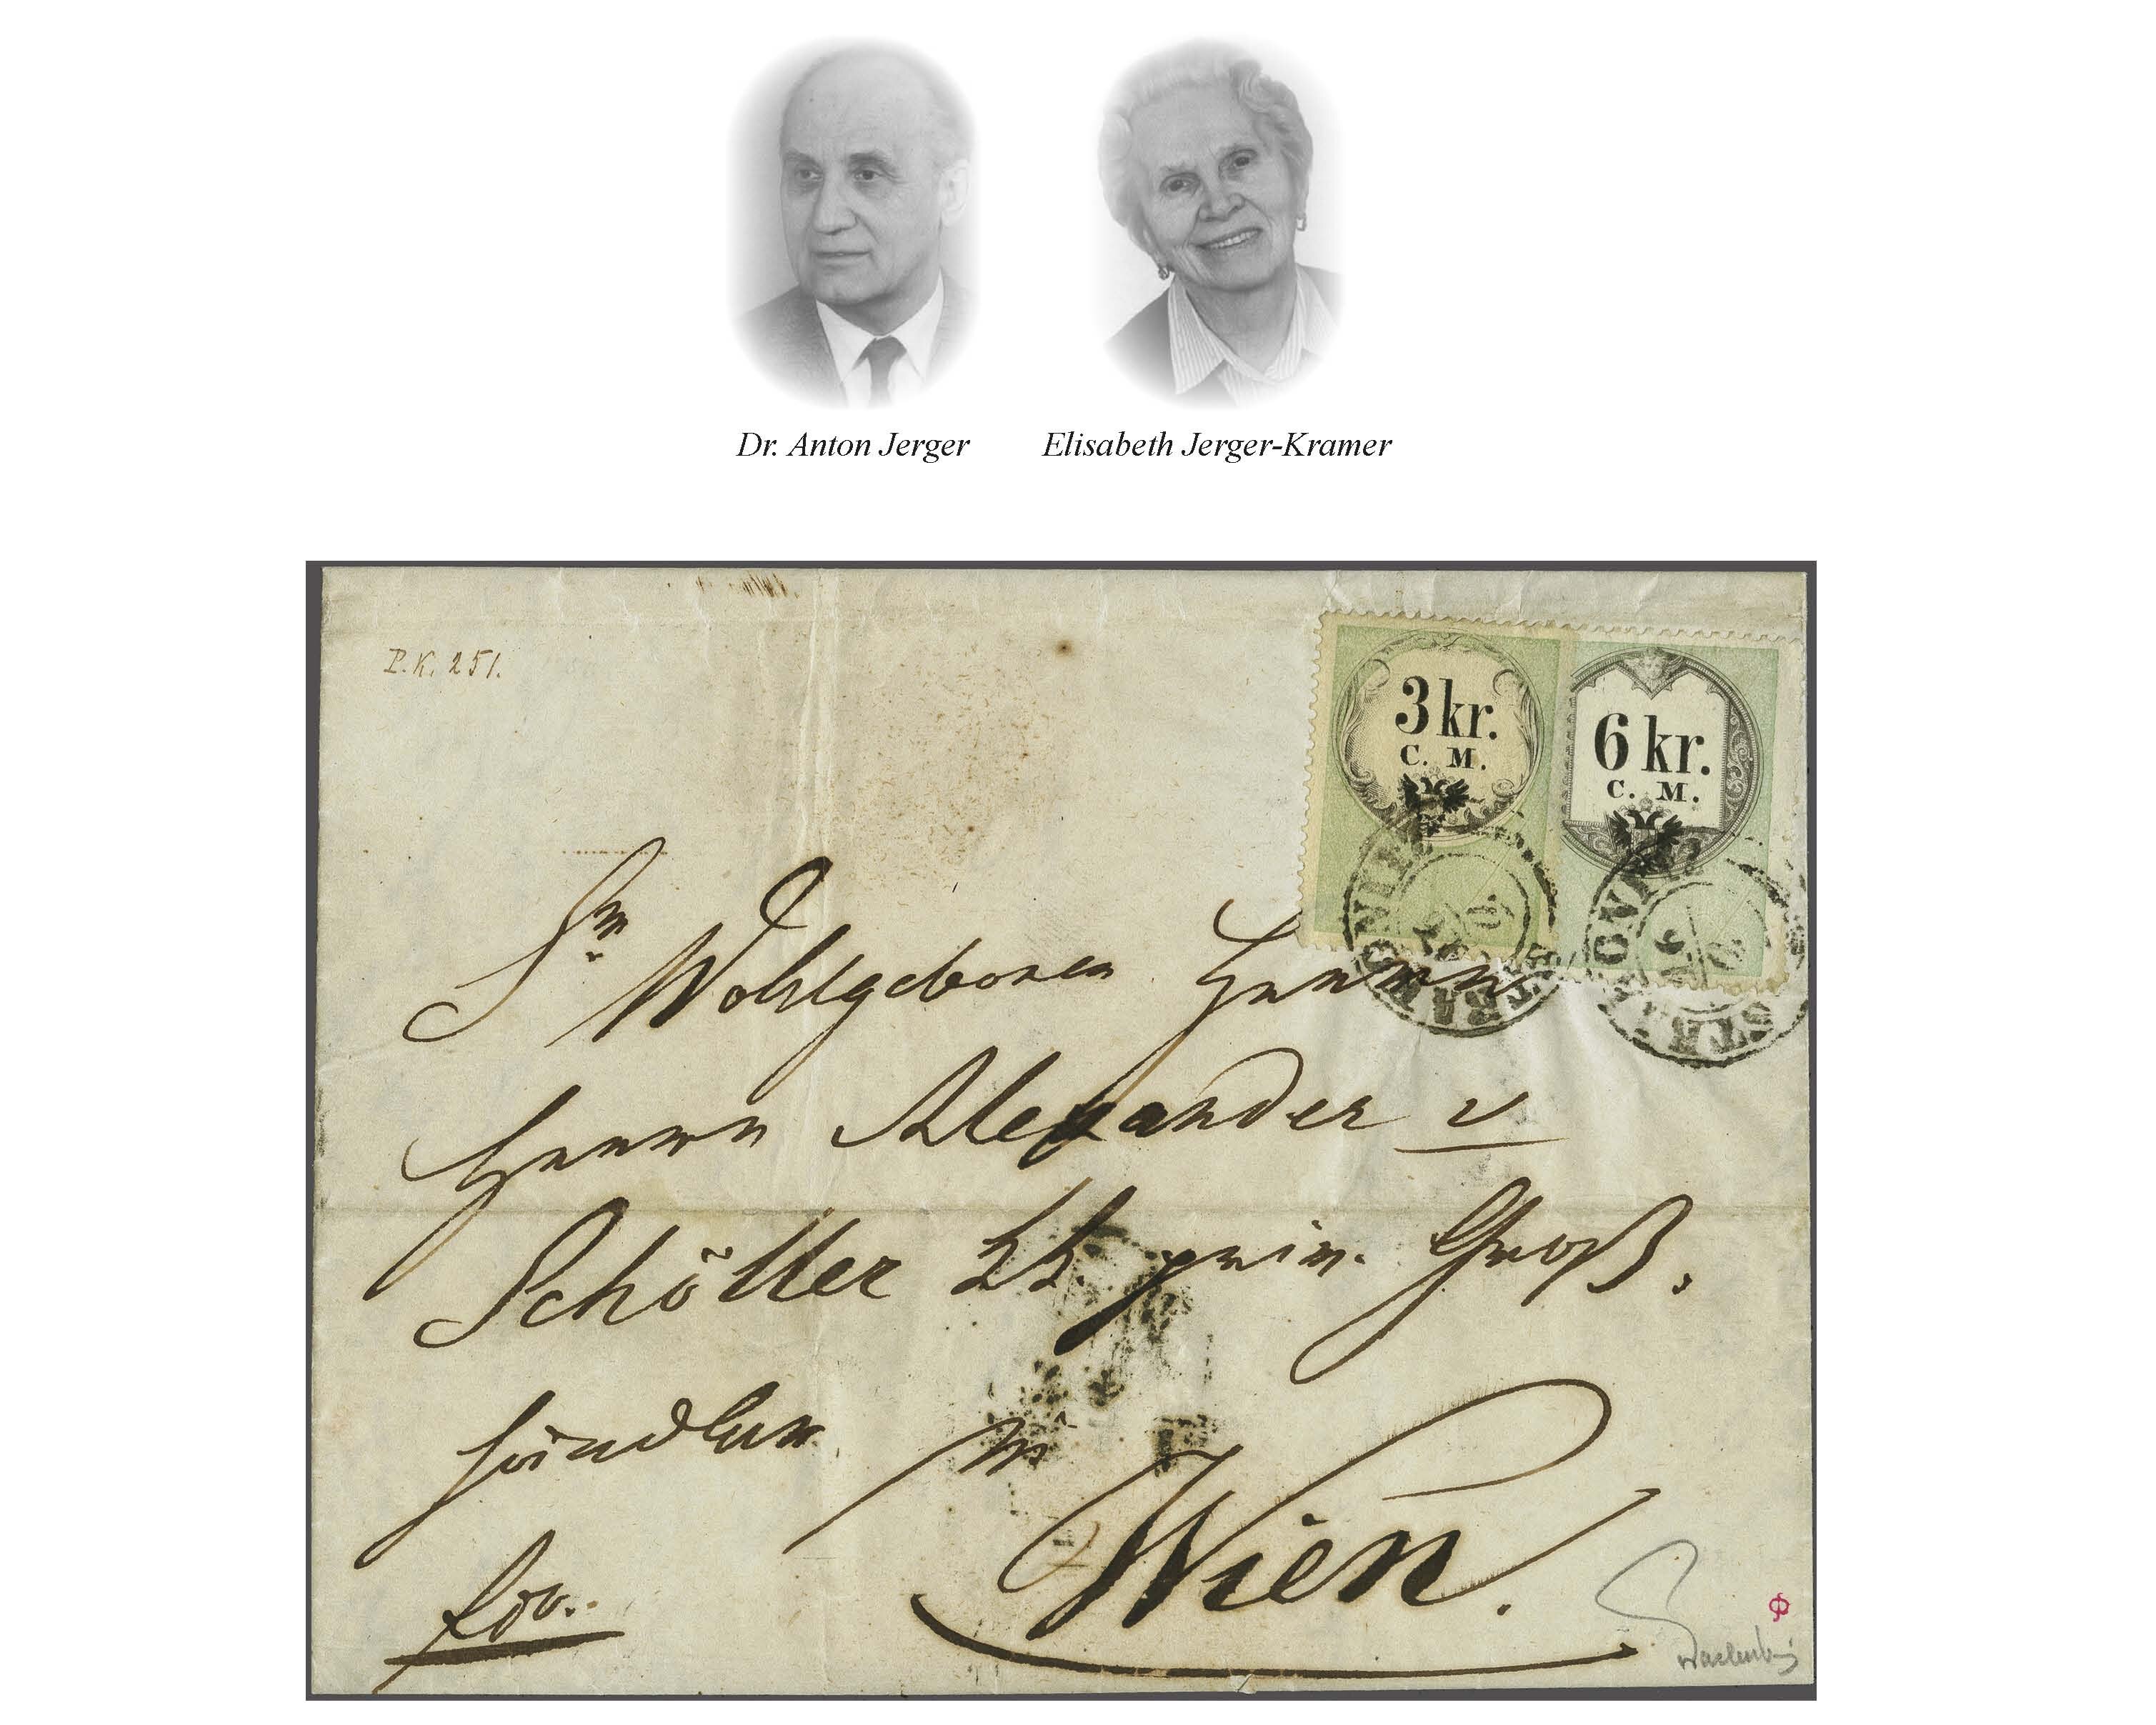 Dr. Anton Jerger
Elisabeth Jerger-Kramer
P.K. 251.
3 kr.
C. M.
6 kr.
C. M.
Sr Wohlgeboren Herrn
Herrn Alexander v
Schöller kk priv. Groß.
händler in
Wien.
fro.